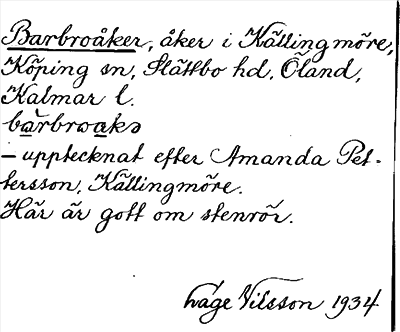 Barbroåker, åker i Källingmöre,
Köping sn, Slättbo hd, Öland,
Kalmar l.
barbrwakə
– upptecknat efter Amanda Pet-
tersson, Källingmöre.
Här är gott om stenrör.
Wage Nilsson 1934